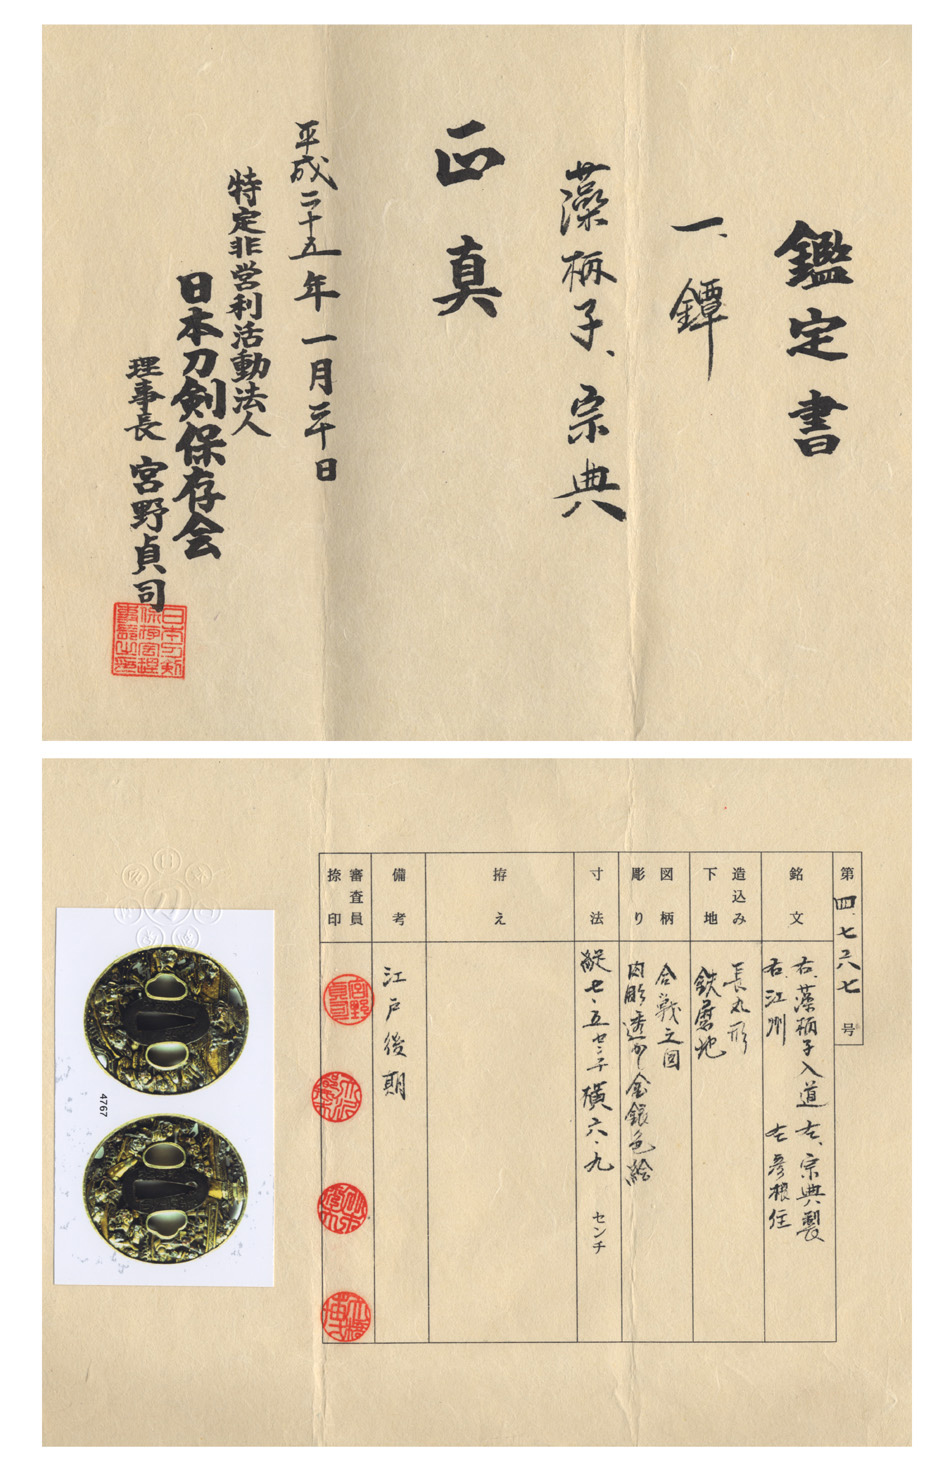 鑑定書
一、鐔
藻柄子、宗典
正真
平成二十五年一月三十日
特定非営利活動法人
日本刀剣保存会
理事長 宮野貞司
第四、七六七号
銘文
右、藻柄子入道 左、宗典製
右、江州 左 彦根住
造込み
下地
長丸形
鉄磨地
図柄
彫り
合戦之図
肉彫透かし金銀色絵
寸法
縦七・五センチ 横六・九 センチ
拵え
備考
江戸後期
審査員
捺印
4767